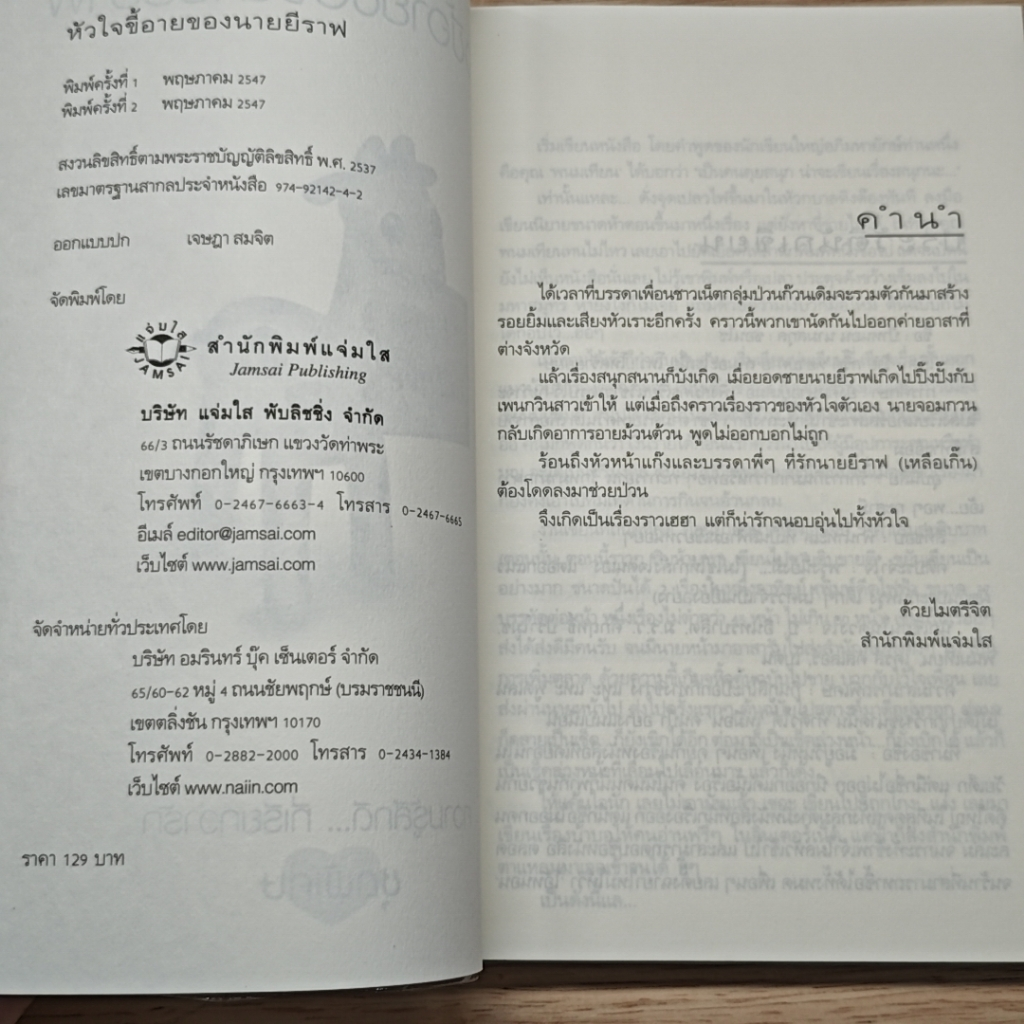 หัวใจขี้อายของนายยีราฟ
พิมพ์ครั้งที่ 1 พฤษภาคม 2547
พิมพ์ครั้งที่ 2 พฤษภาคม 2547
สงวนลิขสิทธิ์ตามพระราชบัญญัติลิขสิทธิ์ พ.ศ. 2537
เลขมาตรฐานสากลประจำหนังสือ 974-92142-4-2
ออกแบบปก เจษฎา สมจิต
จัดพิมพ์โดย
แจ่มใส
JAMSAI
สำนักพิมพ์แจ่มใส
Jamsai Publishing
บริษัท แจ่มใส พับลิชชิ่ง จำกัด
66/3 ถนนรัชดาภิเษก แขวงวัดท่าพระ
เขตบางกอกใหญ่ กรุงเทพฯ 10600
โทรศัพท์ 0-2467-6663-4 โทรสาร 0-2467-6665
อีเมล์ editor@jamsai.com
เว็บไซต์ www.jamsai.com
จัดจำหน่ายทั่วประเทศโดย
บริษัท อมรินทร์ บุ๊ค เซ็นเตอร์ จำกัด
65/60-62 หมู่ 4 ถนนชัยพฤกษ์ (บรมราชชนนี)
เขตตลิ่งชัน กรุงเทพฯ 10170
โทรศัพท์ 0-2882-2000 โทรสาร 0-2434-1384
เว็บไซต์ www.naiin.com
ราคา 129 บาท
คำนำ
ได้เวลาที่บรรดาเพื่อนชาวเน็ตกลุ่มป่วนก๊วนเดิมจะรวมตัวกันมาสร้าง
รอยยิ้มและเสียงหัวเราะอีกครั้ง คราวนี้พวกเขานัดกันไปออกค่ายอาสาที่
ต่างจังหวัด
แล้วเรื่องสนุกสนานก็บังเกิด เมื่อยอดชายนายยีราฟเกิดไปปิ๊งปั๊งกับ
เพนกวินสาวเข้าให้ แต่เมื่อถึงคราวเรื่องราวของหัวใจตัวเอง นายจอมกวน
กลับเกิดอาการอายม้วนต้วน พูดไม่ออกบอกไม่ถูก
ร้อนถึงหัวหน้าแก๊งและบรรดาพี่ๆ ที่รักนายยีราฟ (เหลือเกิ๊น)
ต้องโดดลงมาช่วยป่วน
จึงเกิดเป็นเรื่องราวเฮฮา แต่ก็น่ารักจนอบอุ่นไปทั้งหัวใจ
ด้วยไมตรีจิต
สำนักพิมพ์แจ่มใส